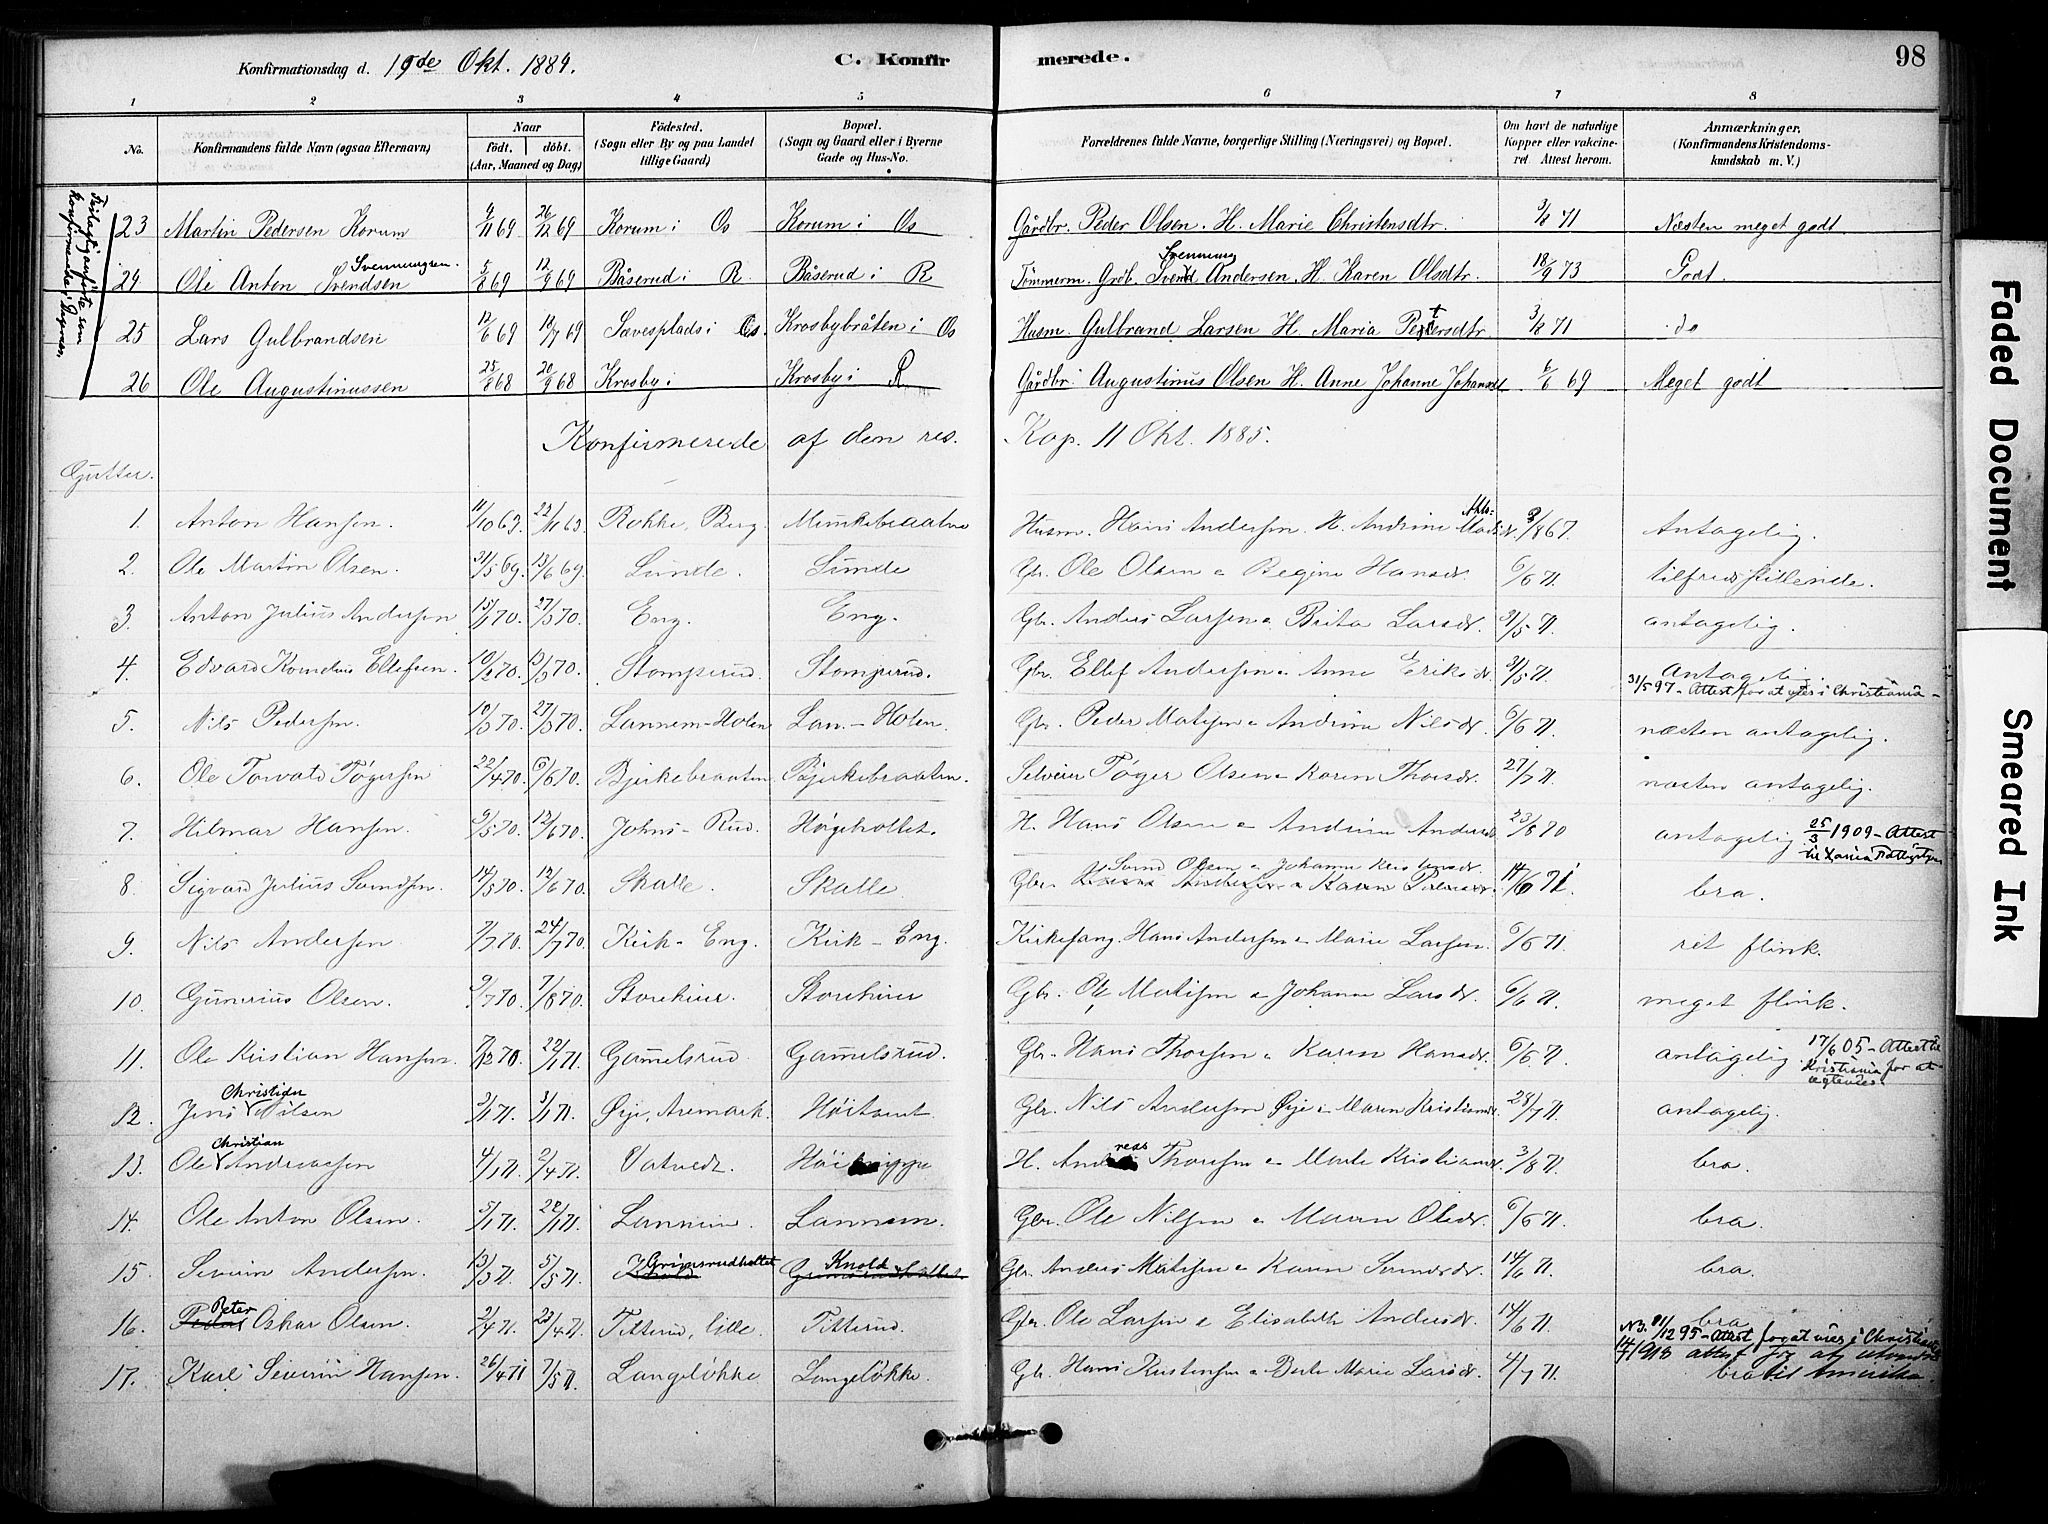 Konfirmationsdag d. 19de Okt. 1884. C. Konfir merede. 98
1 2 3 4 5 6 7 8
No. Konfirmandens fulde Navn (ogsaa Efternavn) Naar født. døbt. (Aar, Maaned og Dag) Fødested. (Sogn eller By og paa Landet tillige Gaard) Bopæl. (Sogn og Gaard eller i Byerne Gade og Hus-No. Forældrenes fulde Navne, borgerlige Stilling (Næringsvei) og Bopæl. Om havt de naturlige Kopper eller vakcineret. Attest herom. Anmærkninger. (Konfirmandens Kristendomskundskab m. V.)
Feilagtig anførte som konfirmerede i Degnes,
23 Martin Pedersen Korum 4/11 69 26/12 69 Korum i Os Korum i Os Gårdbr. Peder Olsen. H. Marie Christensdtr. 3/8 71 Næsten meget godt.
24 Ole Anton Svendsen Svenningsen. 5/8 69 12/9 69 Båserud i R. Båserud i R Tømmerm. Grdb. Svend Svenning Andersen. H. Karen Olsdtr. 18/9 73 Godt.
25 Lars Gulbrandsen 12/6 69 18/7 69 Sævesplads i Os. Krosbybråten i Os Husm. Gulbrand Larsen H. Maria Petersdtr 3/8 71 do
26 Ole Augustinussen 25/8 68 20/9 68 Krosby i Krosby i R Gårdbr. Augustinus Olsen H. Anne Johanne Johansdt 6/6 69 Meget godt
Konfirmerede af den res. Kap. 11 Okt. 1885.
Gutter.
1. Anton Hansen. 11/10 69 22/11 69 Rokke, Berg Munkebraaten Husm. Hans Andersen. H. Andrine 3/8 67. Antagelig.
2. Ole Martin Olsen. 31/5 69. 13/6 69 Lunde. Lunde Gbr. Ole Olsen o Regine Hansdr. 6/6 71 tilfredsstillende.
3. Anton Julius Andersen 15/1 70. 27/3 70. Eng. Eng. Gbr. Anders Larsen o Brita Larsdr. 31/5 71. antagelig.
4. Edvard Kornelius Ellefsen. 10/2 70. 13/3 70. Stomperud. Stomperud. Gbr. Ellef Andersen o Anne Eriksdr 31/5 71. Antagelig.
31/5 97 - Attest for at vies i Christiania -
5. Nils Pedersen. 10/3 70. 27/3 70. Lannem-Holen Lan.-Holen. Gbr. Peder Matisen o Andrine Nilsdr. 6/6 71. næsten antagelig.
6. Ole Torvald Tøgersen 22/4 70. 6/6 70. Bjerkebraaten. Bjerkebraaten. Selveier Tøger Olsen o Karen Thorsdr. 27/7 71. næsten antagelig.
7. Hilmar Hansen. 9/5 70. 12/6 70. Johns-Rud. Høgeholtet. H. Hans Olsen o Andrine Andersdr 23/8 70 antagelig 25/3 1909 - Attest
8. Sigvard Julius Svendsen. 14/5 70. 12/6 70. Skalle. Skalle. Gbr. Svend Olsen o Johanne Kristensdr. 14/6 71. bra.
9. Nils Andersen. 7/7 70. 24/7 70. Kirk-Eng. Kirk-Eng. Kirkesang. Hans Andersen o Marie Larsen. 6/6 71. ret flink.
10. Gunerius Olsen. 9/7 70. 7/8 70. Storehier. Storehier Gbr. Ole Matisen o Johanne Larsdr. 6/6 71. meget flink.
11. Ole Kristian Hansen. 7/12 70. 22/1 71. Gamelsrud. Gamelsrud. Gbr. Hans Thorsen o Karen Hansdr. 6/6 71. antagelig 17/6 05 - Attest til Kristiania for at ægtevies.
12. Jens Christian Nilsen 3/1 71. 3/1 71. Ørje, Aremark. Høitomt. Gbr. Nils Andersen Ørje o Maren Kristiansdr. 28/7 71. antagelig.
13. Ole Christian Andreassen 4/1 71. 2/4 71. Vatvedt. H. Andreas Thorsen o Marte Kristiansdr. 3/8 71. bra.
14. Ole Anton Olsen. 5/1 71. 22/1 71. Lannem. Lannem. Gbr. Ole Nilsen o Maren Olsdr. 6/6 71. bra.
15. Severin Andersen. 13/3 71. 5/5 71. Knold Grimsrudholtet Knold Grimsrudholtet Gbr. Anders Matisen o Karen Svendsdr. 14/6 71. bra.
16. Peder Peter Oskar Olsen. 2/4 71. 23/4 71. Titterud, lille. Titterud. Gbr. Ole Larsen o Elisabeth Andersdr. 14/6 71. bra
N3. 31/12 95 - Attest for at vies i Christiania
17. Karl Severin Hansen. 26/4 71 7/5 71. Langeløkke Langeløkke. Gbr. Hans Kristensen o Berte Marie Larsdr. 4/7 71. bra
14/7 1913 attest for at utvandre til Amerika.
Faded Document
Smeared Ink